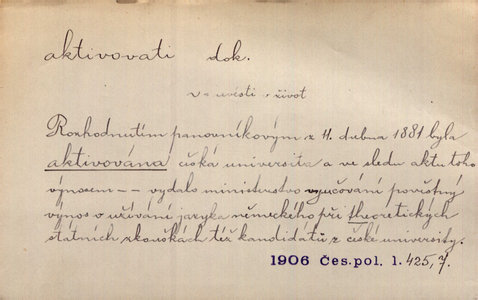 aktivovati dok.
v uvésti v život
Rozhodnutím panovníkovým z 11. dubna 1881 byla
aktivována česká universita a ve sledu aktu toho
výnosem -- vydalo ministerstvo vyučování pověstný
výnos o užívání jazyka německého při theoretických
státních zkouškách též kandidátů z české university.
1906 Čes. pol. 1. 425, 7.